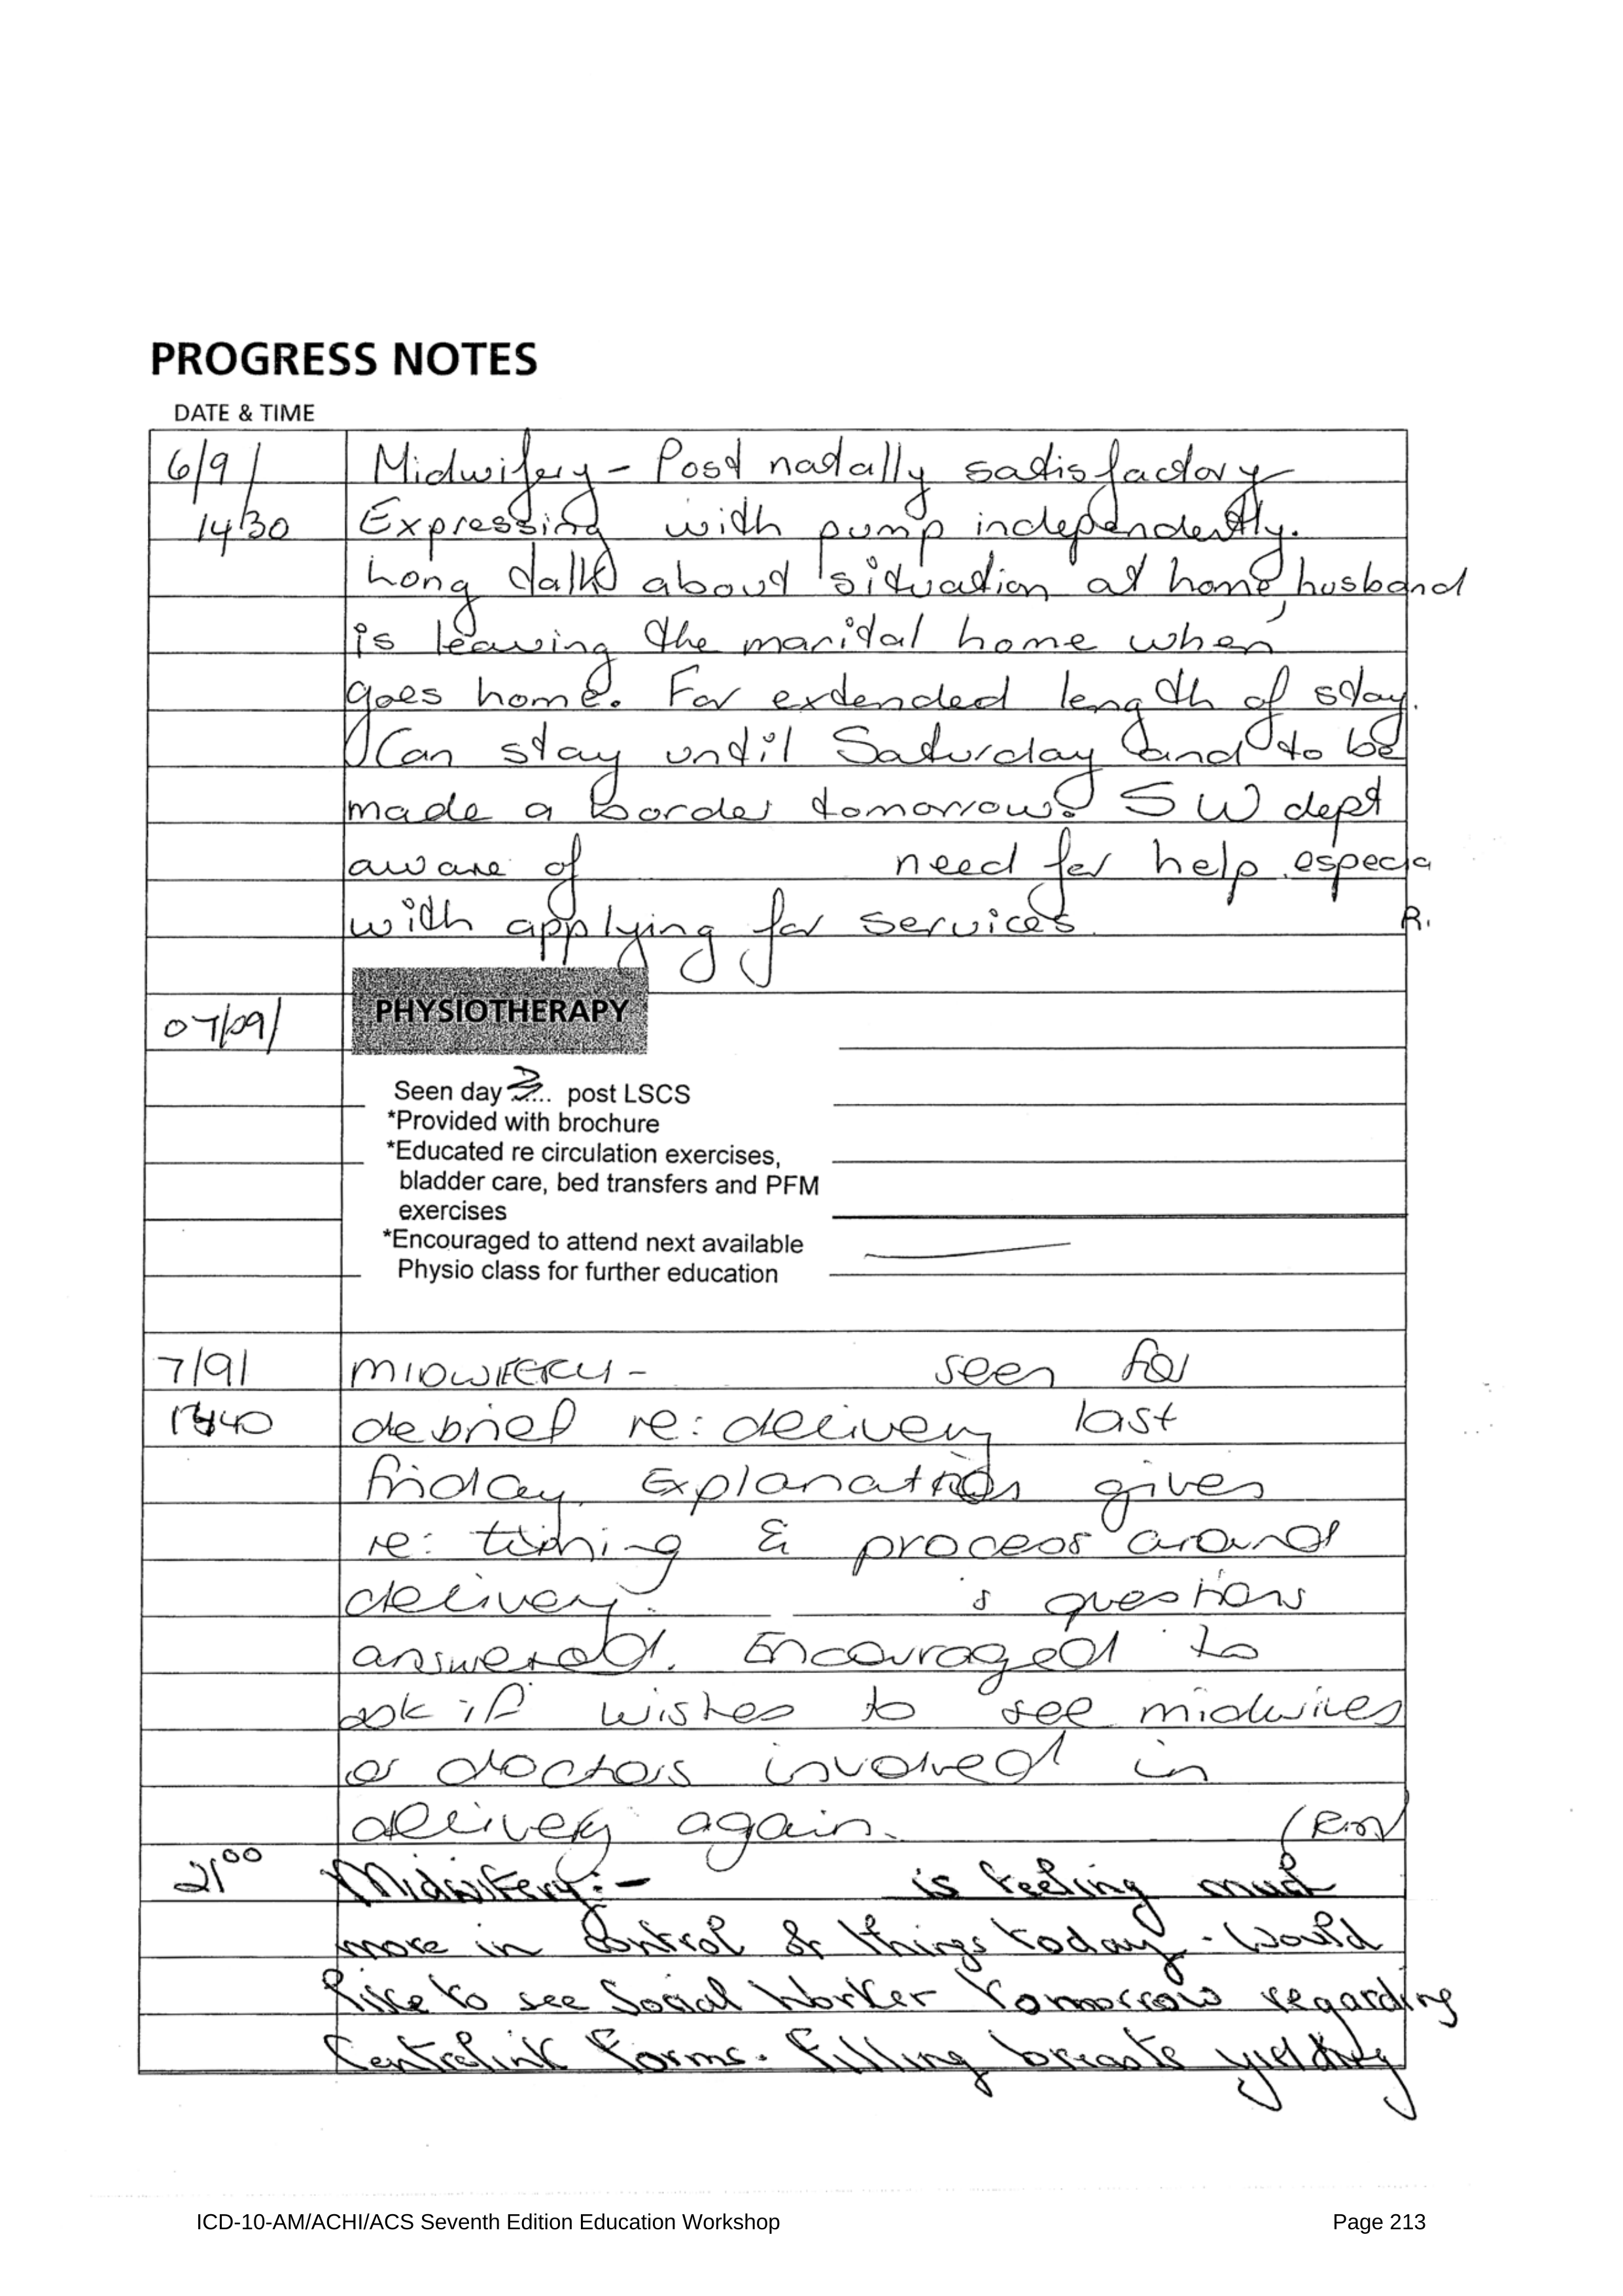 PROGRESS NOTES
DATE & TIME
6/9/ Midwifery - Post natally satisfactory
14:30 Expressing with pump independently.
Long talk about situation at home, husband
is leaving the marital home when
goes home. For extended length of stay.
Can stay until Saturday and to be
made a border tomorrow. SW dept
aware of need for help especia
with applying for services. R.
07/09/ PHYSIOTHERAPY
Seen day post LSCS
*Provided with brochure
*Educated re circulation exercises,
bladder care, bed transfers and PFM
exercises
*Encouraged to attend next available
Physio class for further education
7/9/ MIDWIFERY - seen for
debrief re: delivery last
friday. Explanations given
re: timing & process around
delivery. 's questions
answered. Encouraged to
ask if wishes to see midwives
or doctors involved in
delivery again. (RM
2100 Midwifery:- is feeling much
more in control of things today. Would
like to see Social Worker tomorrow regarding
Centrelink Forms. Filling breasts yielding
ICD-10-AM/ACHI/ACS Seventh Edition Education Workshop Page 213